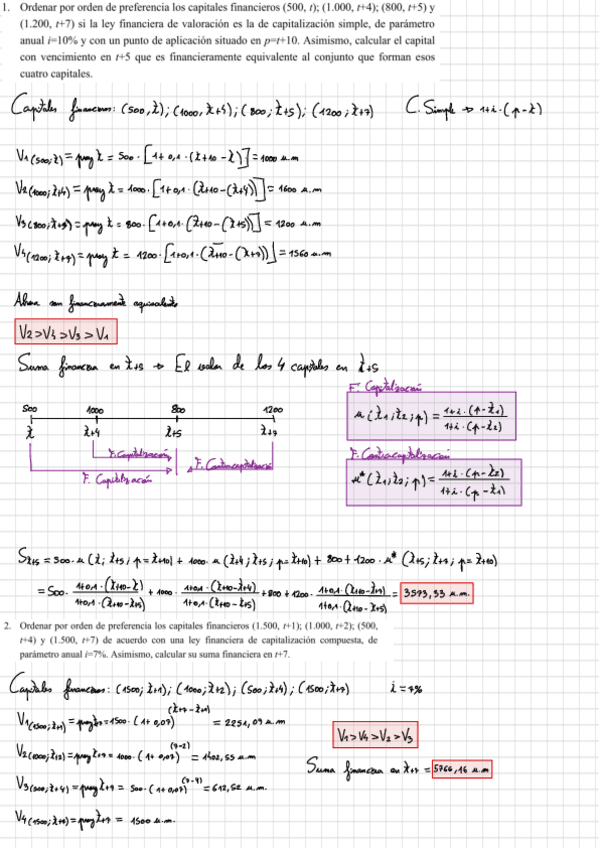 1. Ordenar por orden de preferencia los capitales financieros (500, t); (1.000, t+4); (800, t+5) y
(1.200, t+7) si la ley financiera de valoración es la de capitalización simple, de parámetro
anual i=10% y con un punto de aplicación situado en p=t+10. Asimismo, calcular el capital
con vencimiento en t+5 que es financieramente equivalente al conjunto que forman esos
cuatro capitales.
Capitales financieros: (500, t); (1000, t+4); (800; t+5); (1200; t+7) C. Simple → 1+i·(p-t)
V1(500;t) = proy t = 500·[1+0,1·(t+10-t)] = 1000 u.m
V2(1000;t+4) = proy t = 1000·[1+0,1·(t+10-(t+4))] = 1600 u.m
V3(800;t+5) = proy t = 800·[1+0,1·(t+10-(t+5))] = 1200 u.m
V4(1200;t+7) = proy t = 1200·[1+0,1·(t+10-(t+7))] = 1560 u.m
Ahora son financieramente equivalentes
V2>V4>V3>V1
Suma financiera en t+5 → El valor de los 4 capitales en t+5
500 1000 800 1200
t t+4 t+5 t+7
F. Capitalización
F. Capitalización
F. Contracapitalización
F. Capitalización
u(t1;t2;p) = 1+i·(p-t1) / 1+i·(p-t2)
F. Contracapitalización
u*(t1;t2;p) = 1+i·(p-t2) / 1+i·(p-t1)
St+5 = 500·u(t; t+5; p=t+10) + 1000·u(t+4; t+5; p=t+10) + 800 + 1200·u*(t+5; t+7; p=t+10)
= 500· 1+0,1·(t+10-t) / 1+0,1·(t+10-t+5) + 1000· 1+0,1·(t+10-t+4) / 1+0,1·(t+10-t+5) + 800 + 1200· 1+0,1·(t+10-t+7) / 1+0,1·(t+10-t+5) = 3573,33 u.m.
2. Ordenar por orden de preferencia los capitales financieros (1.500, t+1); (1.000, t+2); (500,
t+4) y (1.500, t+7) de acuerdo con una ley financiera de capitalización compuesta, de
parámetro anual i=7%. Asimismo, calcular su suma financiera en t+7.
Capitales financieros: (1500; t+1); (1000; t+2); (500; t+4); (1500; t+7) i = 7%
V1(1500;t+1) = proy t+7 = 1500·(1+0,07)^(t+7-t+1) = 2251,09 u.m
V2(1000;t+2) = proy t+7 = 1000·(1+0,07)^(7-2) = 1402,55 u.m
V3(500;t+4) = proy t+7 = 500·(1+0,07)^(7-4) = 612,52 u.m.
V4(1500;t+7) = proy t+7 = 1500 u.m.
V1>V4>V2>V3
Suma financiera en t+7 = 5766,16 u.m